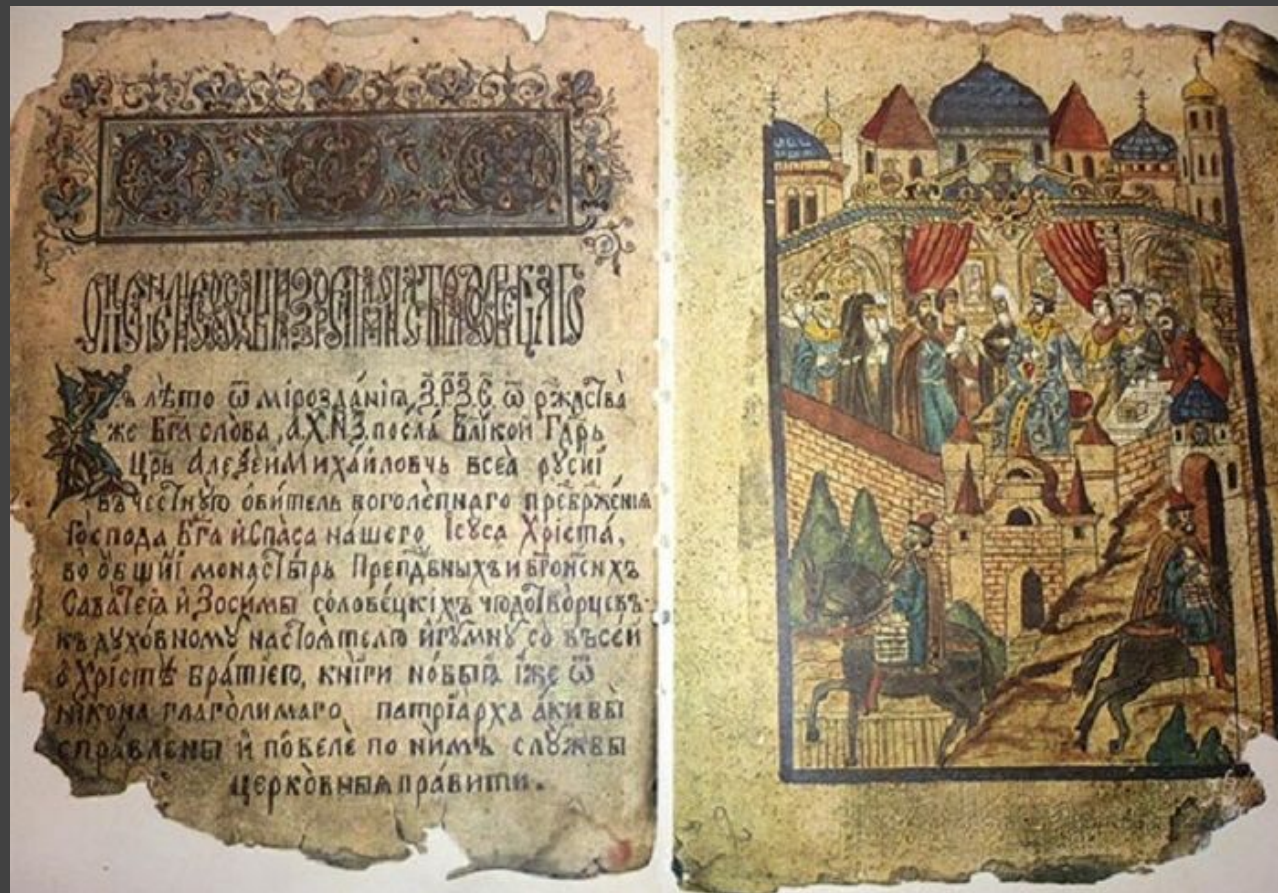 въ лѣто ѿ мірозданіѧ ҂З.Р.З.Є. ѿ рж҃ства
же Бг҃а слова ҂А.Х.Н.З. посла Вл҃ікой Гд҃рь
Цр҃ь Алеѯѣй Міха́йловчь всеѧ рꙋсиі
въ честнꙋю ѻбитель боголѣпнаго преѡбрже́нія
Господа Бг҃а и҆ Спаса нашего Ісꙋса Хріста̀,
во ѻ́бщиї монасты́рь Препд҃бныхъ и бг҃оносныхъ
Саваті́ѧ и҆ Зосимы соловецкіхъ чюдотворцевъ
къ дꙋхо́вномꙋ настоѧтелю игꙋмнꙋ со вѣсей
ѻ̀ Хрістѣ̀ бра́тією, кни́ги но́выѧ і҆́же ѿ
ни́кона глаго́лимаго патріарха а́ки бы̀
спра́влены и҆ по́веле по ни́мъ слꙋ́жбы
церко́вныѧ пра́вити.
2